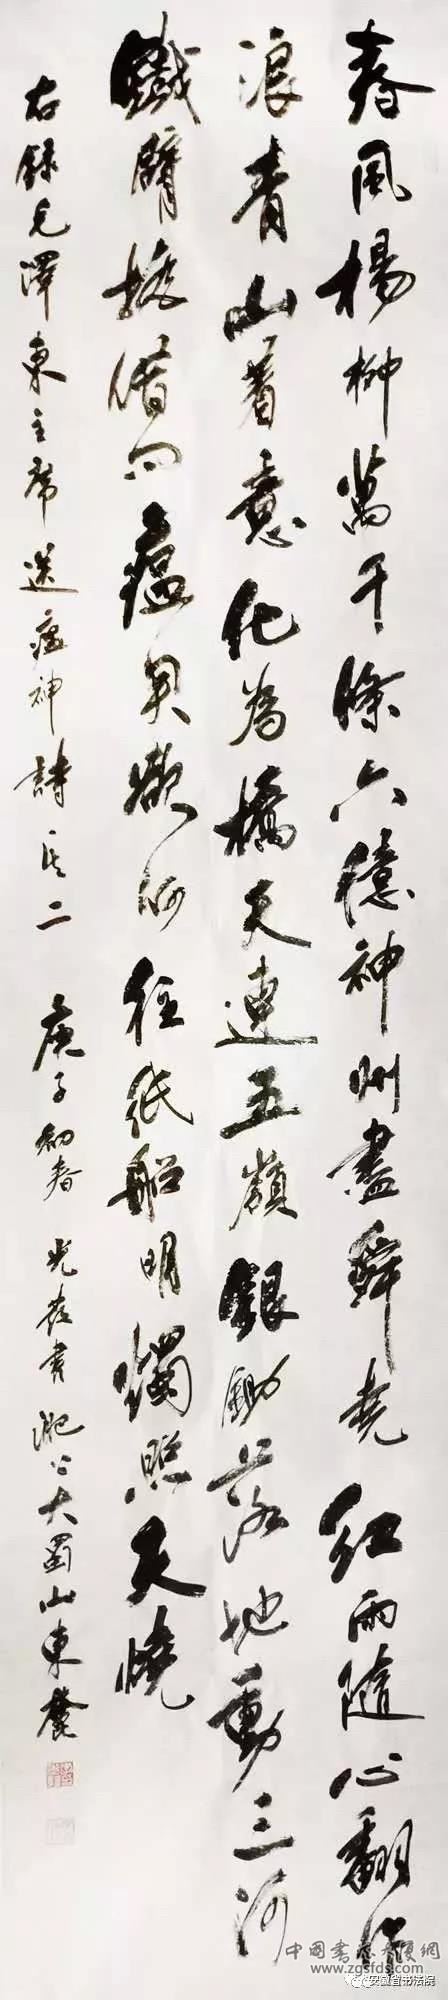 春風楊柳萬千條六億神州盡舜堯紅雨隨心翻作
浪青山着意化為橋天連五嶺銀鋤落地動三河
鐵臂搖借問瘟君欲何往紙船明燭照天燒
右錄毛澤東主席送瘟神詩其二 庚子初春 書 大蜀山東麓
www.zgsfds.com
安徽省书法院